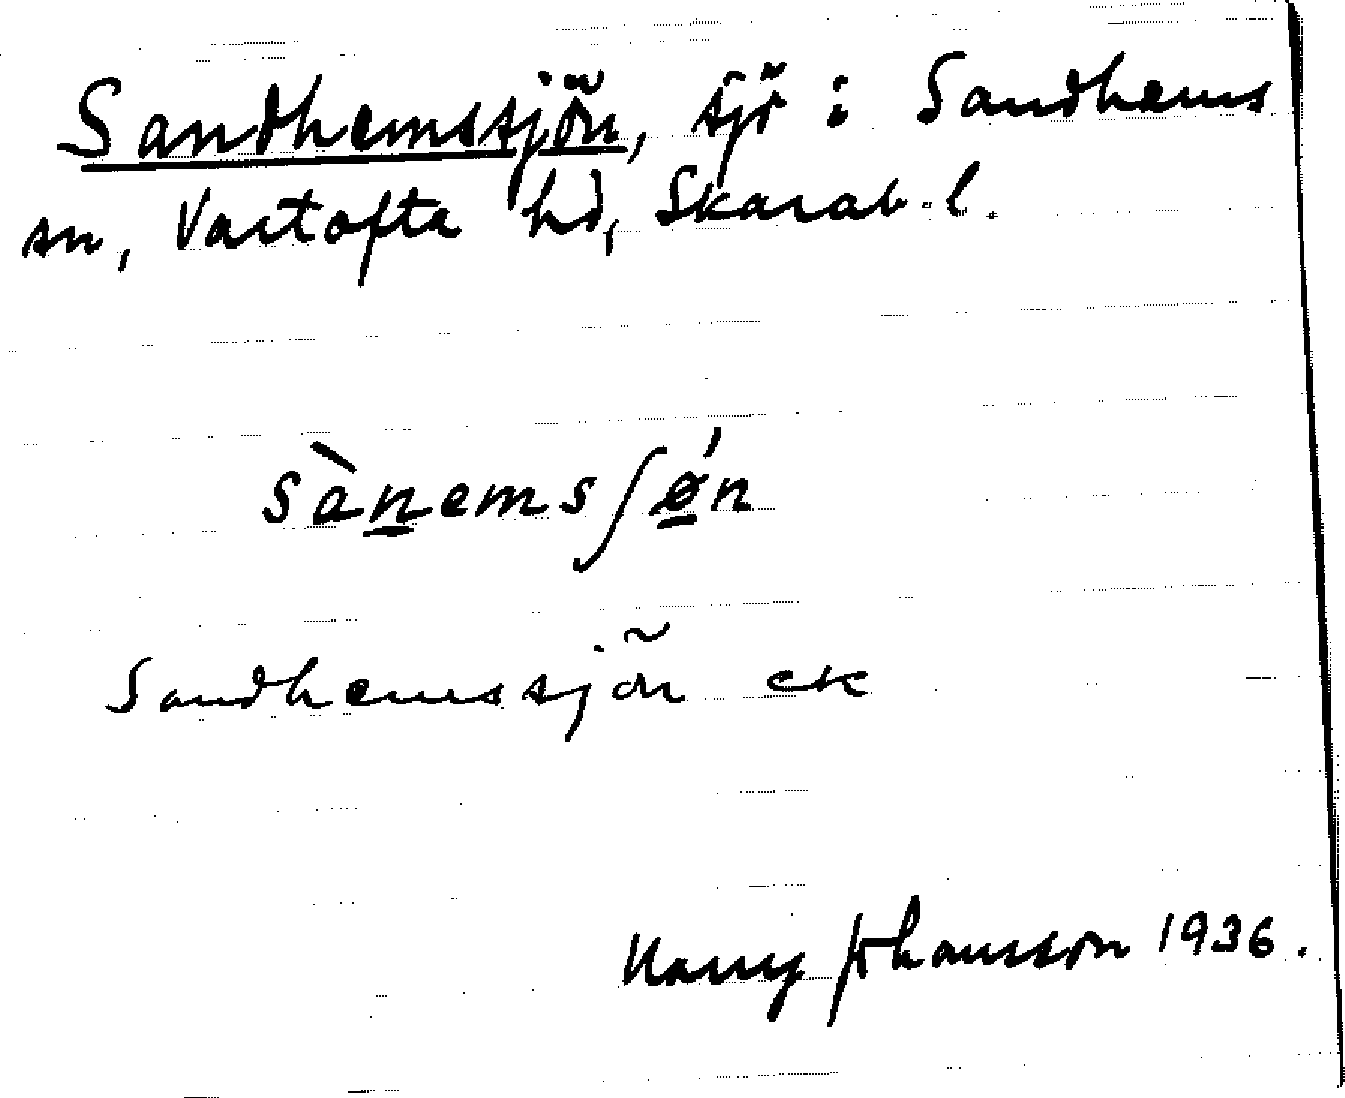 Sandhemssjön, sjö i Sandhems
sn, Vartofta hd, Skarab. l.
sànemsʃǿn
Sandhemssjön ek
Harry Johansson 1936.